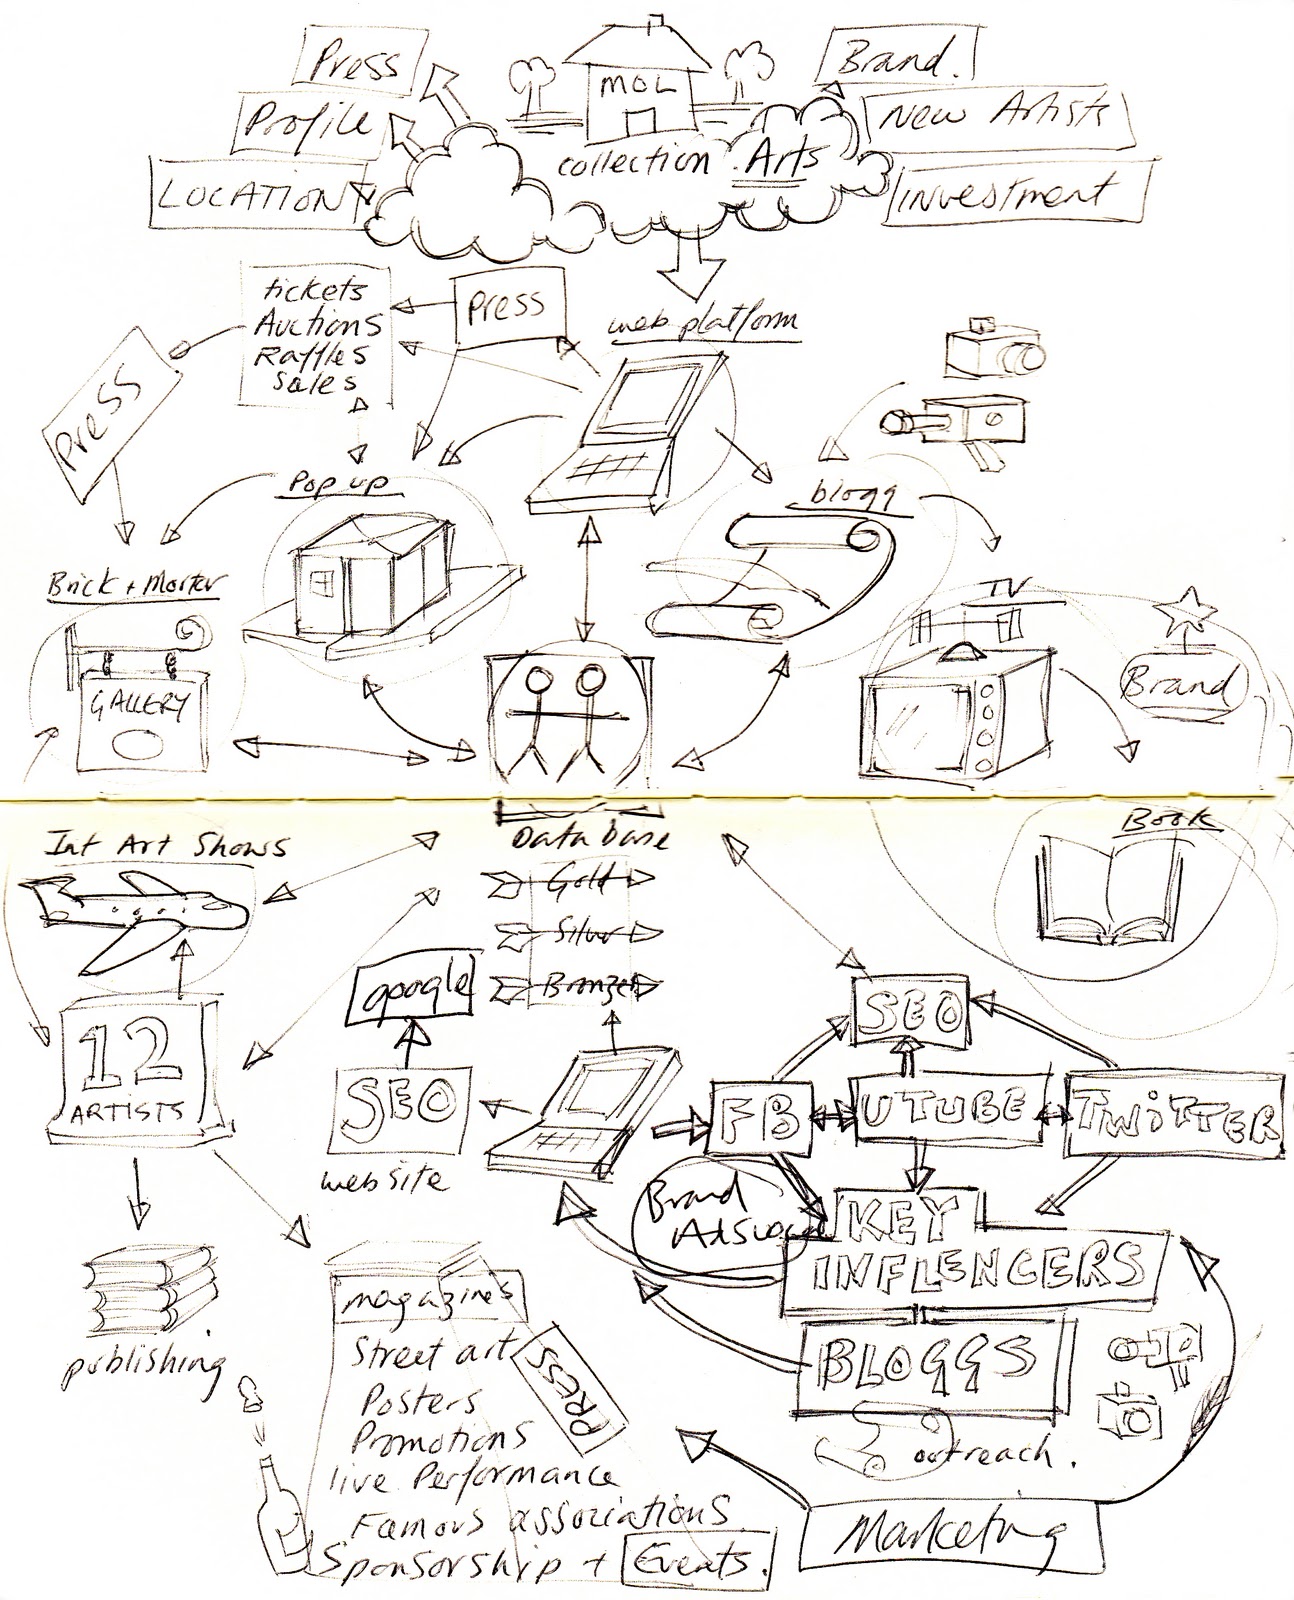 Press
Profile
LOCATION
MOL
collection Arts
Brand.
New Artists
Investment
tickets
Auctions
Raffles
Sales
Press
web platform
Press
Pop up
blogg
Brick + Morter
GALLERY
TV
Brand
Int Art Shows
Data base
Gold
Silver
Bronze
Book
google
SEO
12
ARTISTS
SEO
website
FB
UTUBE
TWITTER
Brand
KEY
INFLENCERS
BLOGGS
outreach.
publishing
magazines
Street art
Posters
Promotions
live Performance
Famous associations
Sponsorship + Events.
PRESS
Marketing